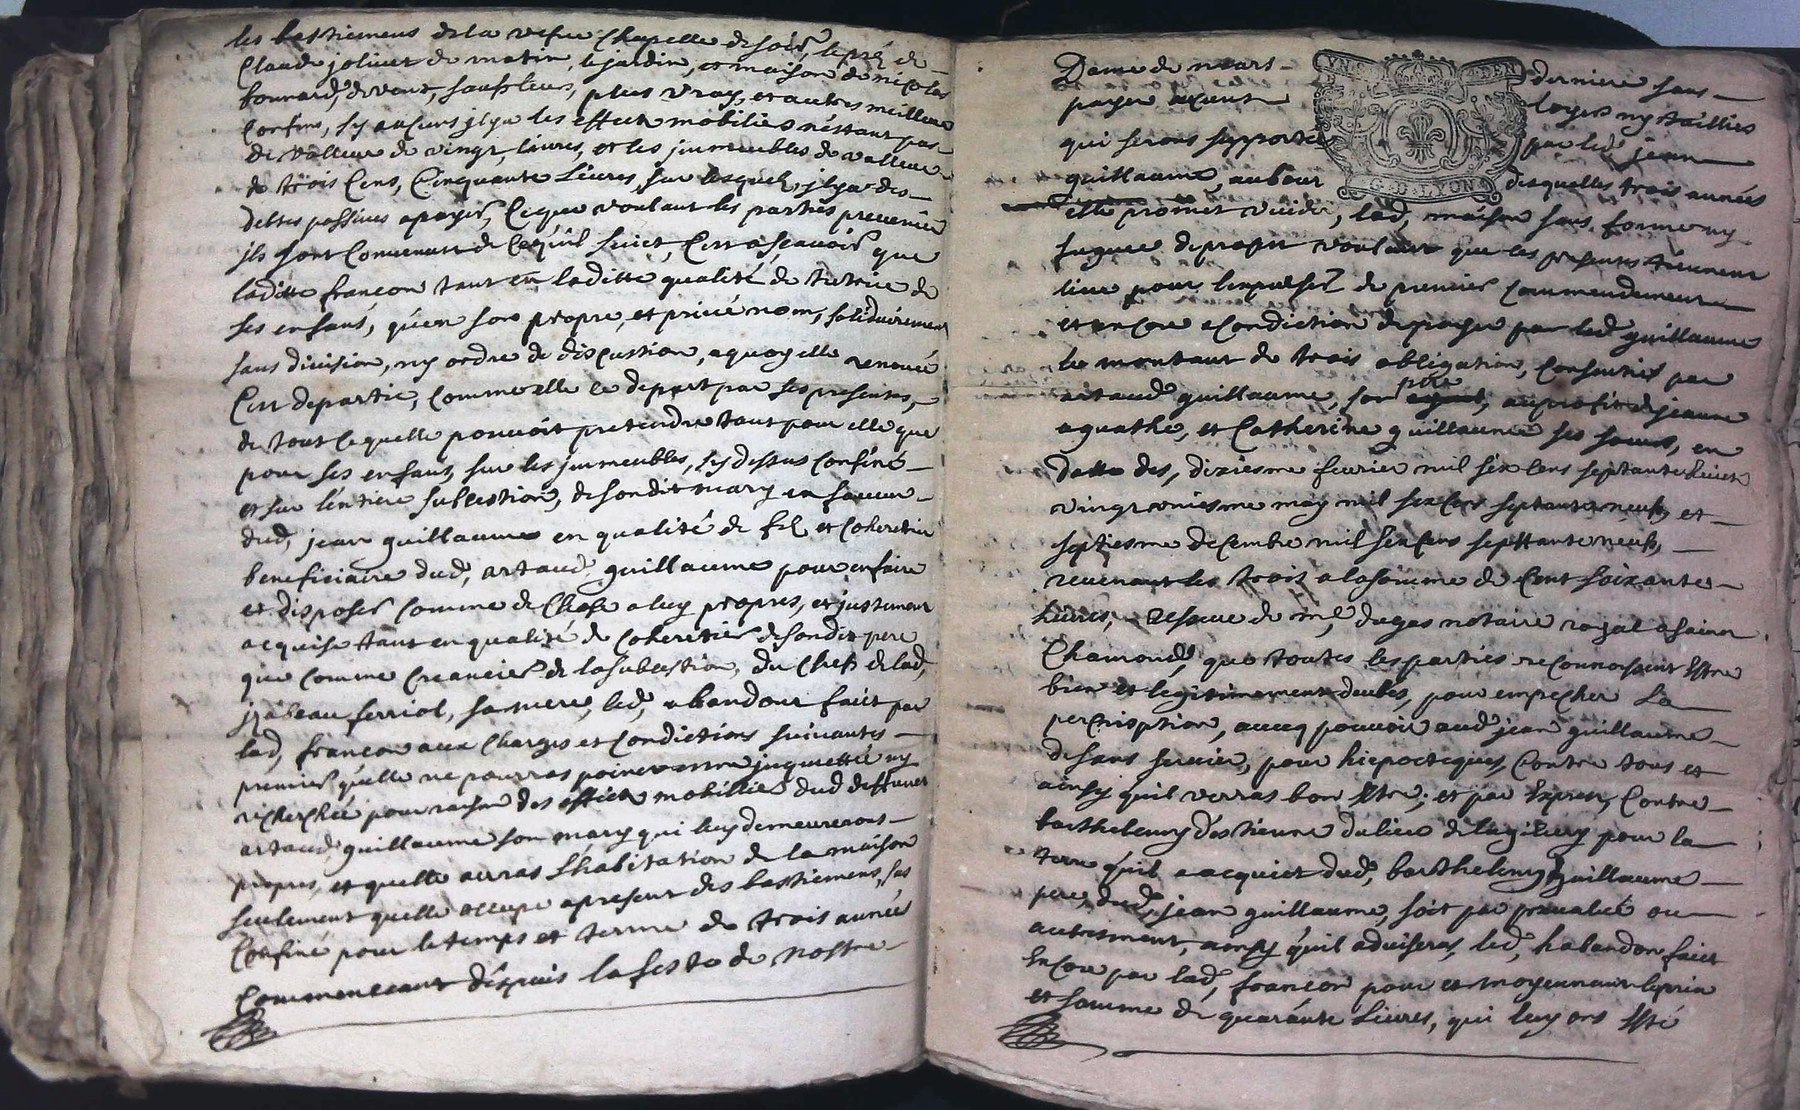 les bastiemens de la vefue Chapelle de soir, le pré de
Claude joliuet de matin, le jardin, et maison de nicolas
bonnard, de vent, sauf leurs, plus vray, et autres meilleurs
Confins, sy aucuns jl ya les effects mobiliers n'estant pas
de valleur de vingt, liures, et les jmmeubles de valleur
de trois Cens, Cinquante Liures, sur lesquels, jl ya des
debtes passiues a payer, Ce que voulant les parties preuenir
jls sont Conuenus de Ce qu'il suiet, C'est a sçauoir que
laditte françon tant en laditte qualité de tutrice de
ses enfans, qu'en son propre, et priué nom, solidairement
sans division, ny ordre de discustion, a quoy elle renoncé
C'est departie, Comme elle ce depart par ses presentes,
de tout Ce quelle pouuoit pretendre tant pour elle que
pour ses enfans, sur les jmmeubles, sy dessus Confinés
et sur l'entiere sucCestion, de son dit mary en faueur
dud, jean guillaume en qualité de fils et Coheretier
beneficiaire dud, artaud, guillaume pour en faire
et disposer Comme de Chose a luy propres, et justement
acquise tant en qualité de Coheretier de son dit pere
que Comme Creancier de la sucCestion, du Chef de lad,
jzabeau ferriol, sa mere, led, abandont fait par
lad, françon aux Charges et Condictions suiuantes
premier qu'elle ne pourras point estre jnquiettée ny
recherchée pour raison des effects mobilliers dud deffunct
artaud guillaume son mary qui luy demeureront
propres, et quelle aurras L'habitation de la maison
seulement quelle occupe a present des bastiemens, sus
Confiné pour le temps et terme de trois année
Commencant d'espuis la feste de nostre
Dame de mars derniere sans
payer aucunt loyers ny taillies
qui seront supportés par led jean
guillaume, au bout desquelles trois années
elle promet vuider, lad, maison sans forme ny
figure de procest voulant que les presentes tiennent
lieu pour l'expulser de premier Commendement
et encore a Condiction de payer par led guillaume
le montant de trois obligation, Consenties par
artaud guillaume, son pere, au profit de jeanne
aguathe, et Catherine guillaume ses sœurs, en
datte des, diziesme feurier mil six Cens septante huict
vingt vniesme may mil six Cens septante neuf, et
septiesme decembre mil six Cens septtante neuf,
reuenant les trois a la somme de Cent soixante
liures, ressue de me, dugas notaire royal a sainct
Chamond, que toutes les parties reconnoissent Estre
bien et legitimement deubes, pour empecher La
perscription, auecq pouuoir aud jean guillaume
de s'ans seruir, pour hiepocteques, Contre tous et
ainsy qu'il verras bon Estre, et par Exprez, Contre
barthelemy d'estienne du lieu de lugniecy pour la
terre qu'il a acquiet dud, barthelemy guillaume
pere, dud, jean guillaume, soit par preualée ou
autrement, ainsy qu'il aduiseras, led, habandon fait
Encore par lad, françon pour et moyennant le prix
et somme de quarante Liures, qui luy ont Esté
G·D·LYON